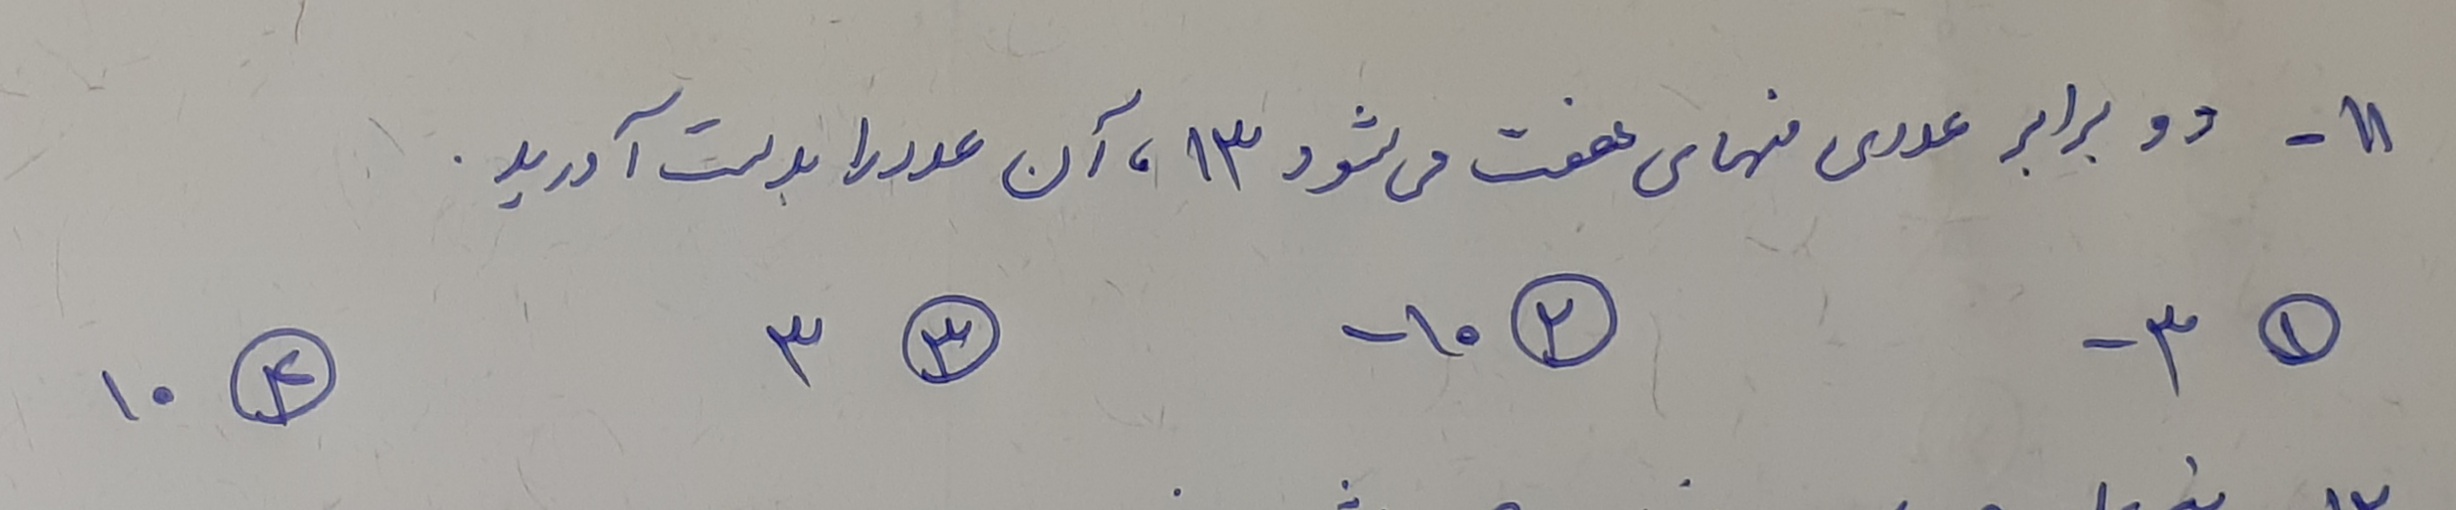 ۱۱- دو برابر عددی منهای هفت می‌شود ۱۳، آن عدد را بدست آورید.
① -۳ ② -۱۰ ③ ۳ ④ ۱۰
۱۲